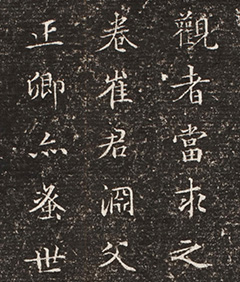 觀者當求之
卷崔君淵父
正卿亦蚤世